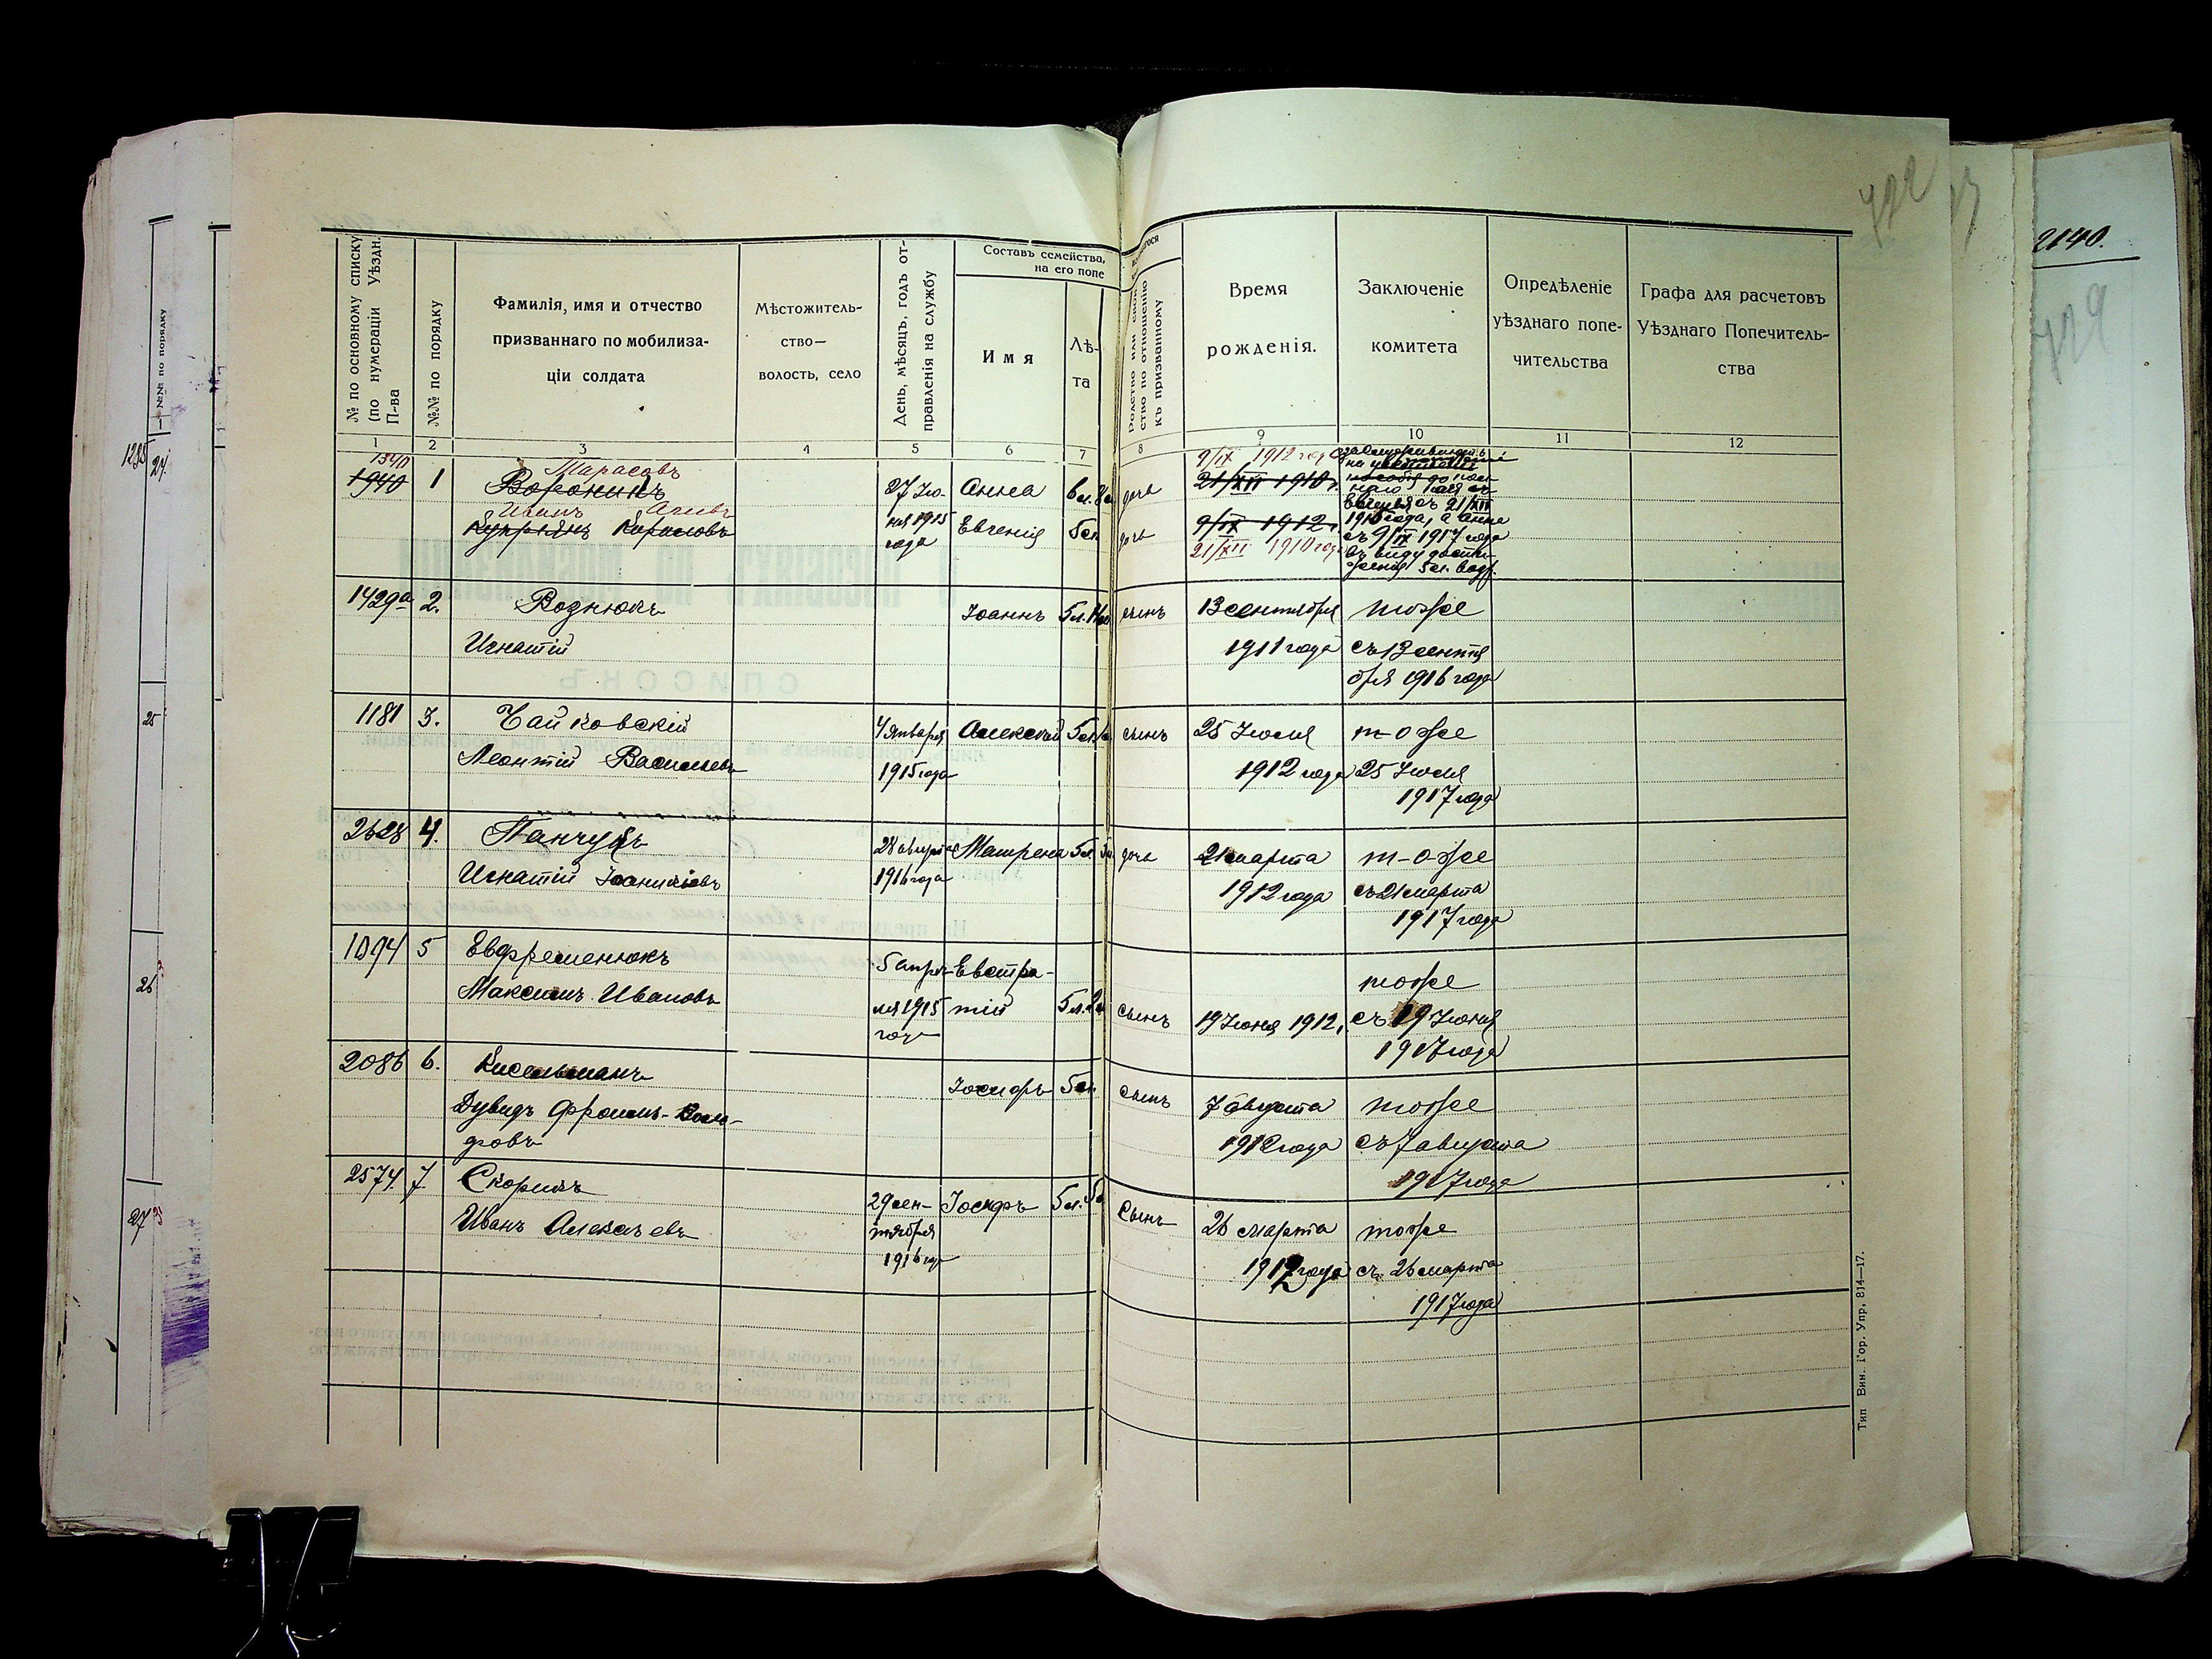 № по основному списку (по нумерации Уѣздн. П-ва
№№ по порядку
Фамилія, имя и отчество
призваннаго по мобилиза-
ціи солдата
Мѣстожитель-
ство—
волость, село
День, мѣсяцъ, годъ от-
правленія на службу
Составъ семейства,
на его попе
Имя
Лѣ-
та
ство по отношенію
къ призванному
Время
рожденія.
Заключеніе
комитета
Опредѣленіе
уѣзднаго попе-
чительства
Графа для расчетовъ
Уѣзднаго Попечитель-
ства
1 2 3 4 5 6 7 8 9 10 11 12
1340
1940 1 Тарасовъ
Иванъ
27 Ію-
ня 1915
года
Анна 6 л. дочь
Евгенія 5 л. дочь
9/IX 1912 года
21/XII 1910 г.
9/IX 1912 г.
21/XII 1910 года
21/XII
1916 года, а Анна
съ 9/IX 1917 года
въ виду дости-
женія 5 л. возр.
1429а 2. Вознюкъ
Игнатій
Іоаннъ 5 л. сынъ
13 сентября
1911 года
тоже
съ 13 сентя
бря 1916 года
1181 3. Чайковскій
Леонтій Васильевъ
4 Января
1915 года
Алексѣй 5 л. сынъ
25 Іюля
1912 года
тоже
25 Іюля
1917 года
2628 4. Панчукъ
Игнатій
28 августа
1916 года
Матрена 5 л. дочь
21 марта
1912 года
т-о-же
съ 21 марта
1917 года
1094 5 Евфременюкъ
Максимъ Ивановъ
5 апрѣ-
ля 1915
года
Евстра-
тій 5 л. сынъ
19 Іюня 1912 г.
тоже
съ 19 Іюня
1917 года
2086 6. Кисельманъ
Дувидъ Фроимъ-Воль-
фовъ
Іосифъ 5 л. сынъ
7 августа
1912 года
тоже
съ 7 августа
1917 года
2574 7. Скорикъ
Иванъ Алексѣевъ
29 сен-
тября
1916 год
Іосифъ 5 л. сынъ
26 марта
1912 года
тоже
съ 26 марта
1917 года
Тип Вин. Гор. Упр. 814—17.
2140.
№№ по порядку
1285 24.
25
26
27